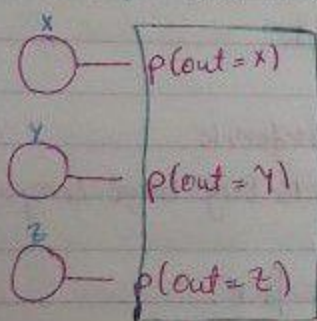 x
p(out = x)
y
p(out = y)
z
p(out = z)